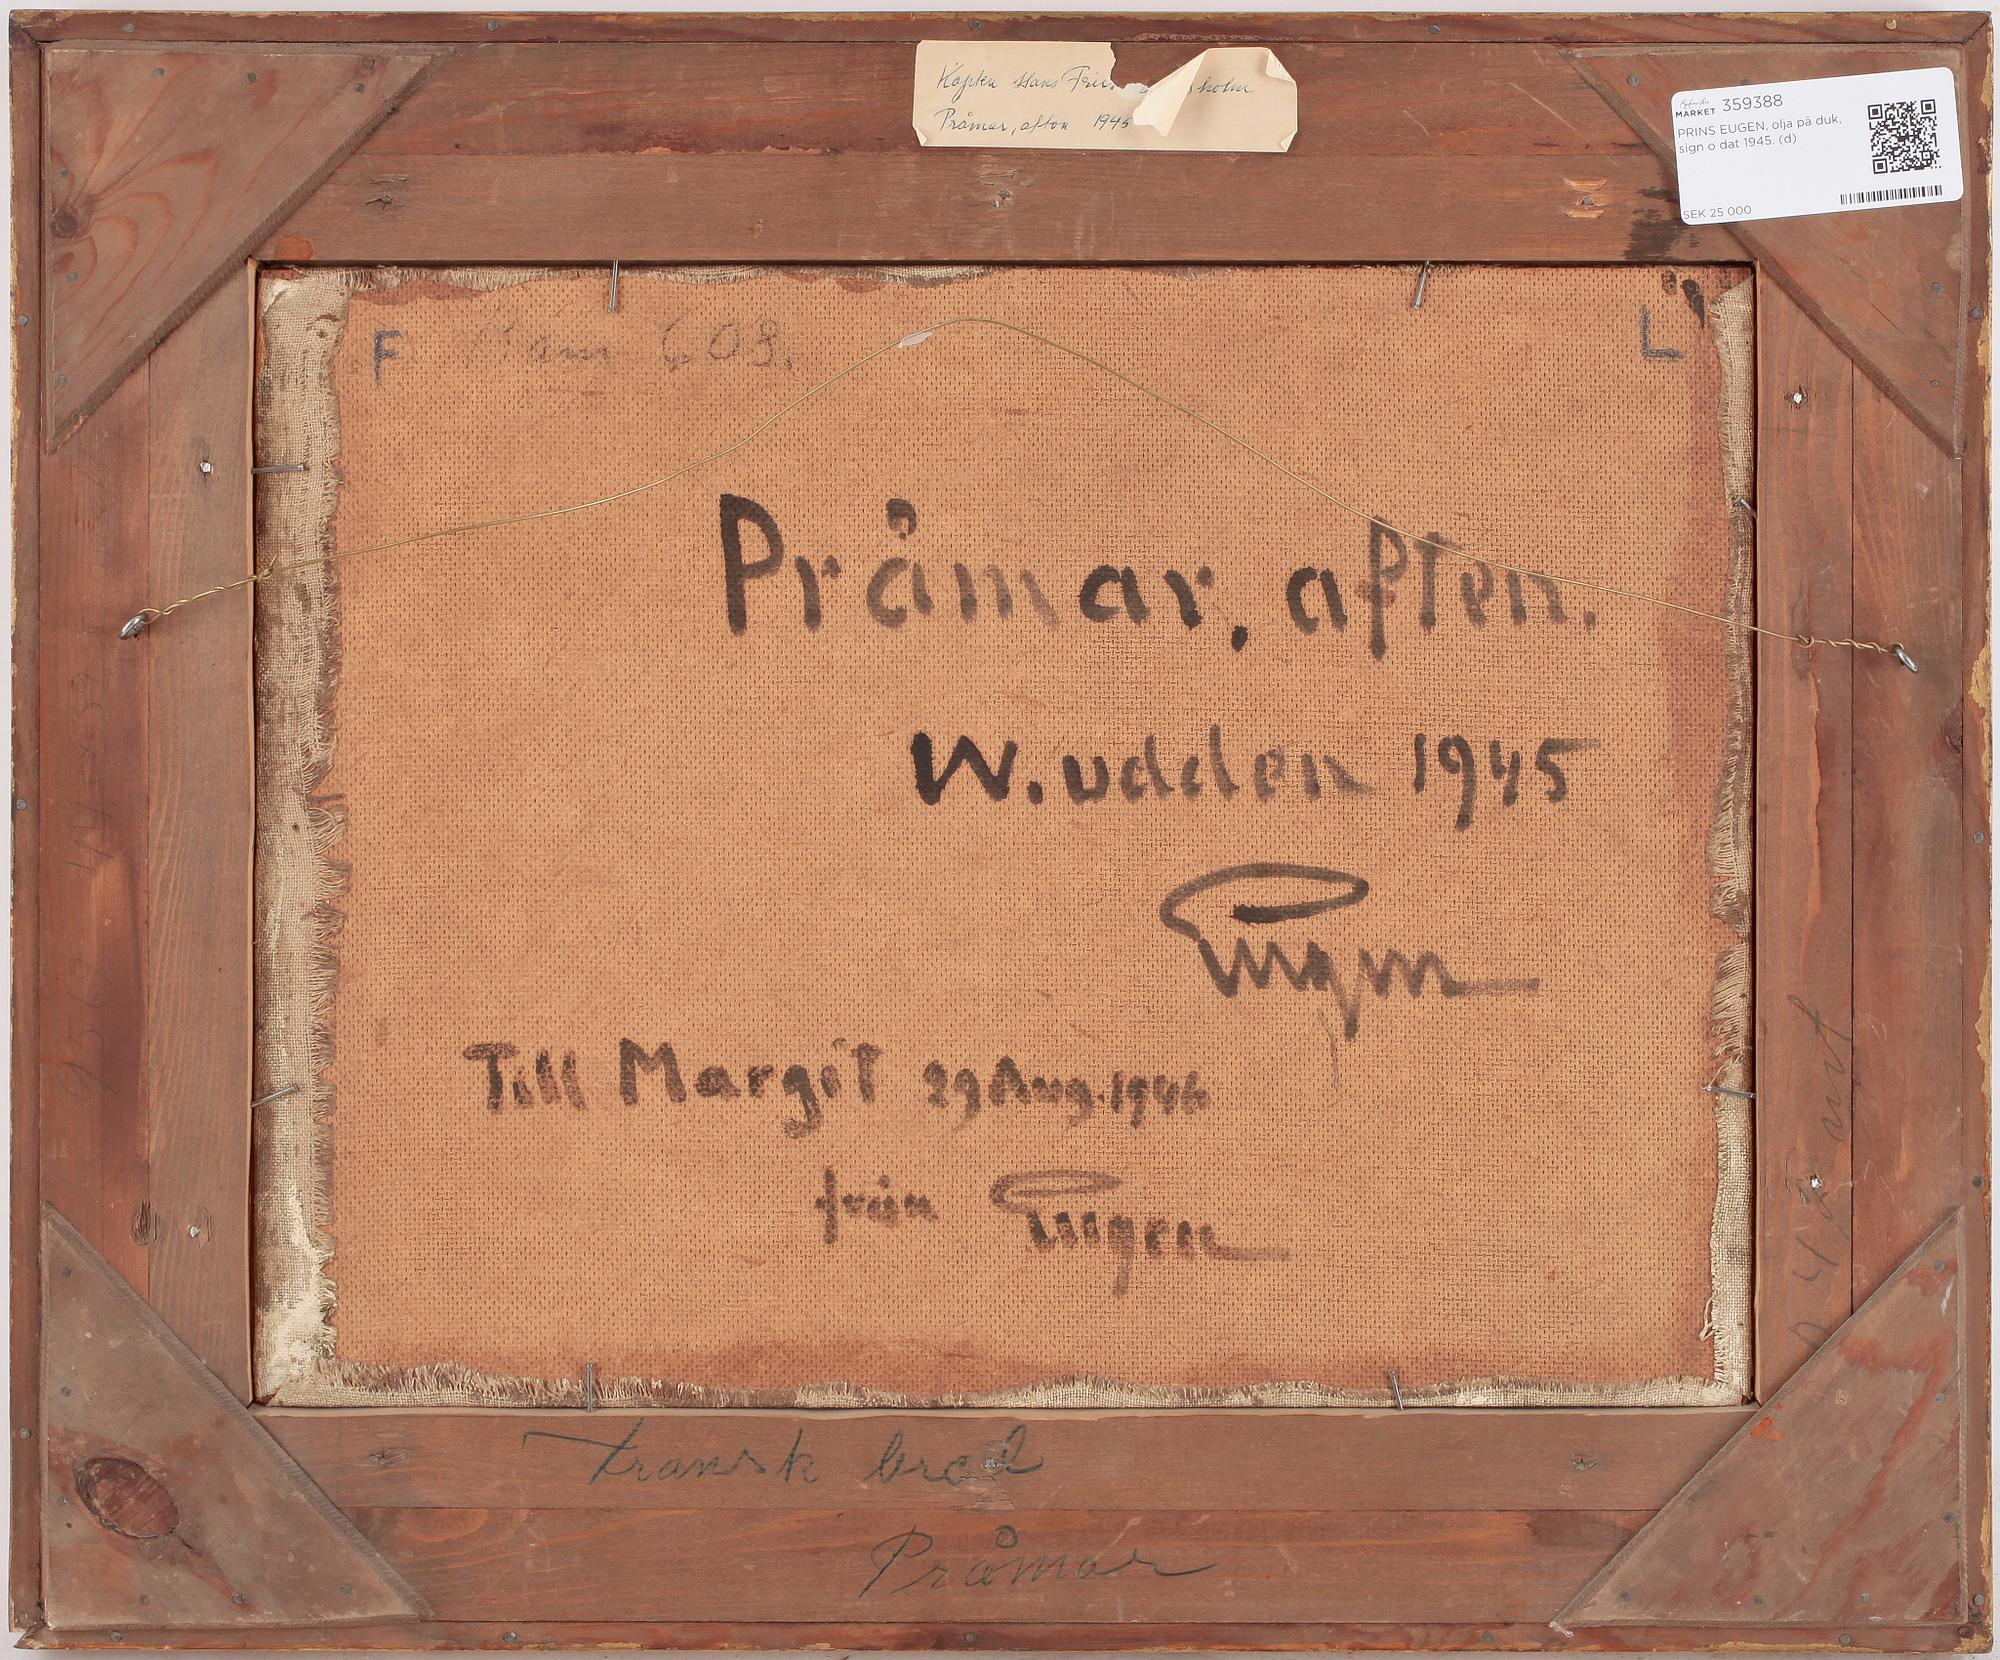 Kapten Hans holm
Pråmar, afton 1945
Bukowskis
MARKET 359388
PRINS EUGEN, olja på duk,
sign o dat 1945. (d)
SEK 25 000
F 608.
L
Pråmar, aften.
W.udden 1945
Eugen
Till Margit 29 Aug. 1946
från Eugen
Fransk bred
Pråmar